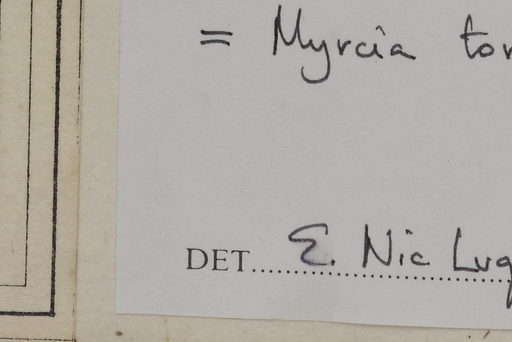 = Myrcia tor
DET. E. Nic Lug